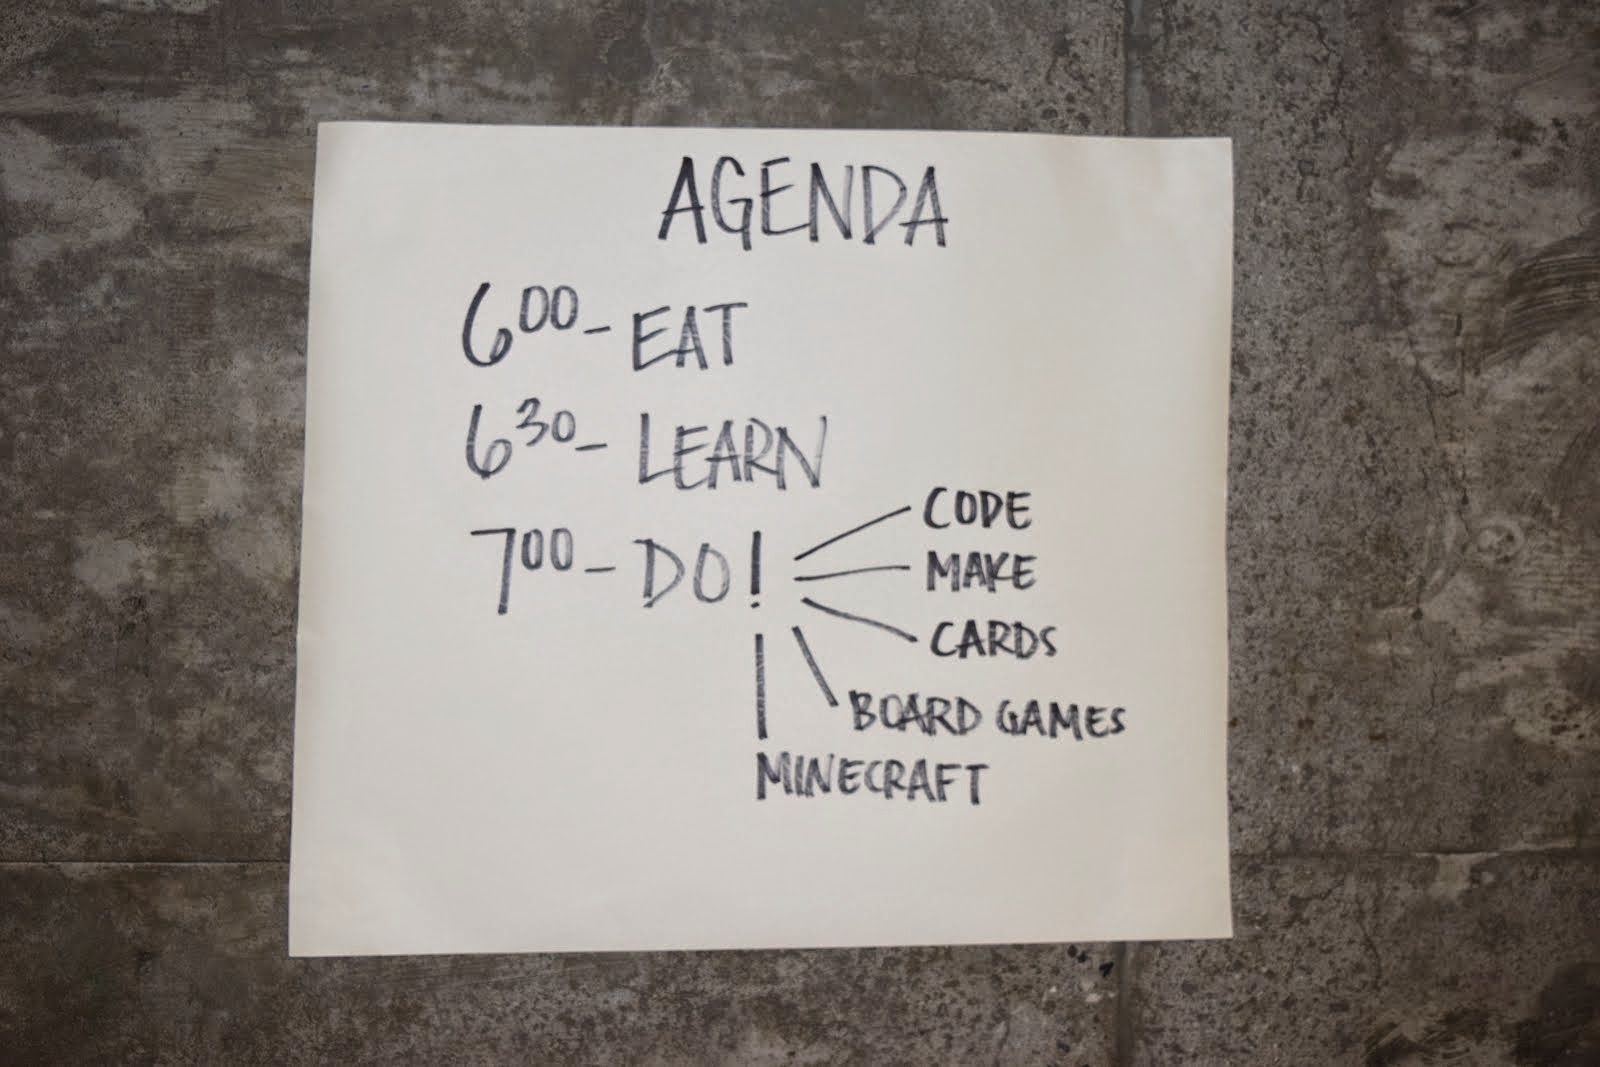 AGENDA
6⁰⁰- EAT
6³⁰- LEARN
7⁰⁰- DO!
CODE
MAKE
CARDS
BOARD GAMES
MINECRAFT